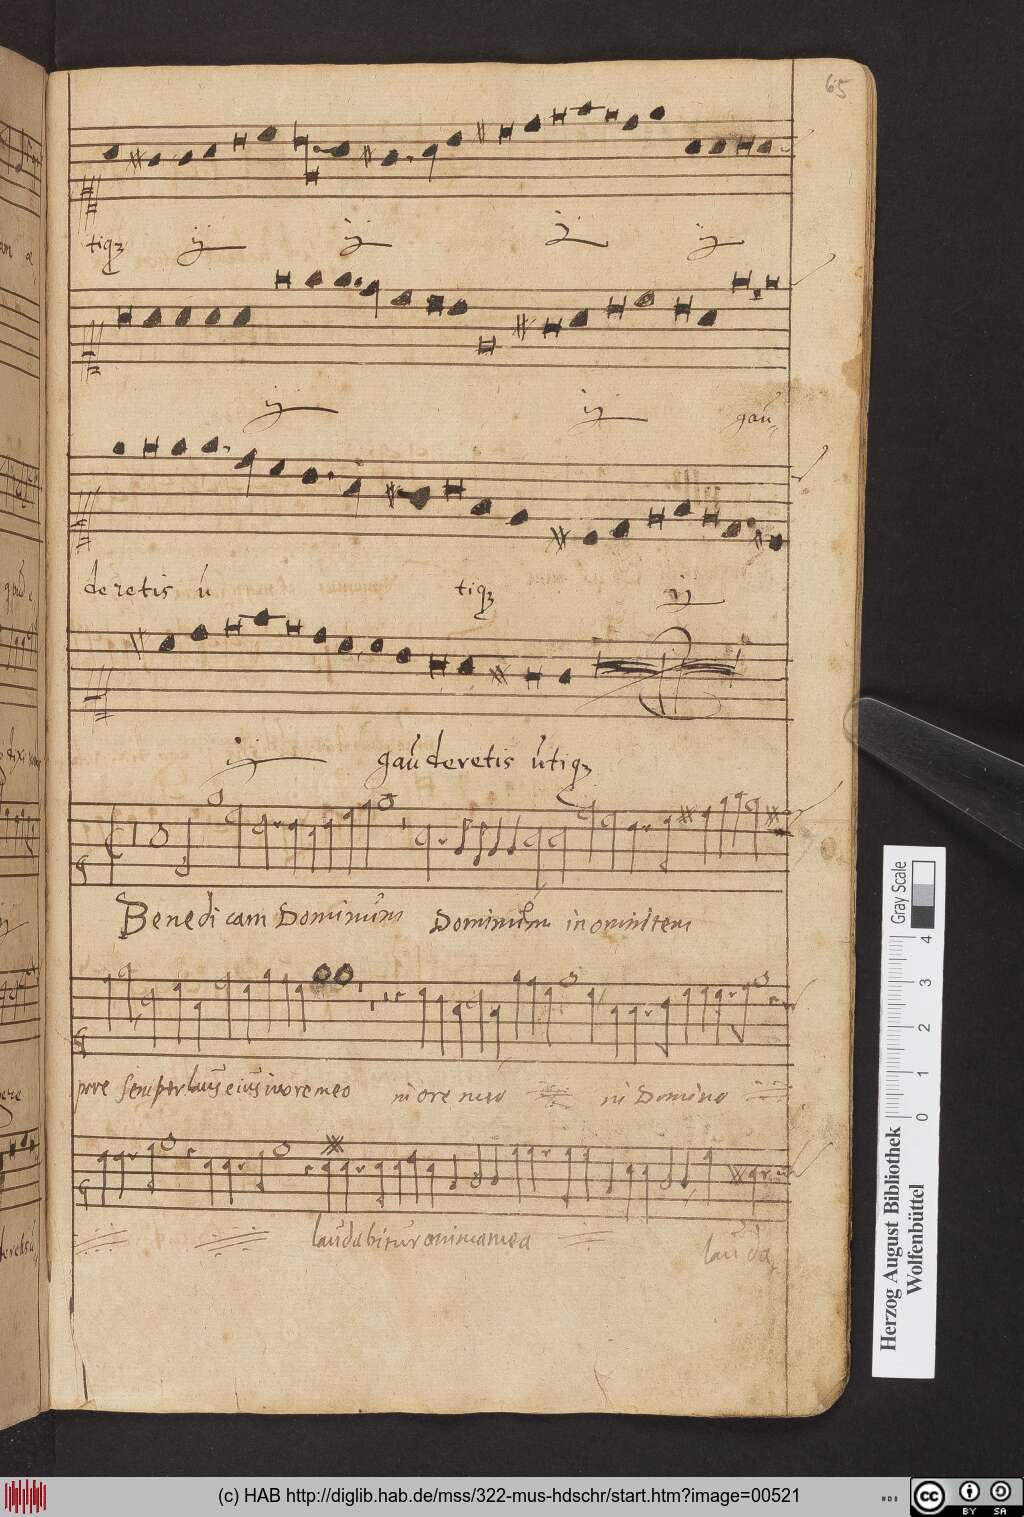 65
tiqꝫ ij ij ij ij
ij ij gaũ
deretis ũ tiqꝫ ij
ij gaũderetis ũtiqꝫ
Benedicam Dominũm Dominũm in omni tem
pore semper laus eiũs in ore meo in ore meo in Domino
laũdabitur anima mea laũda
Gray Scale
0 1 2 3 4
Herzog August Bibliothek
Wolfenbüttel
(c) HAB http://diglib.hab.de/mss/322-mus-hdschr/start.htm?image=00521
cc BY SA